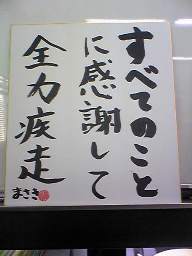 すべてのこと
に感謝して
全力疾走
まさき